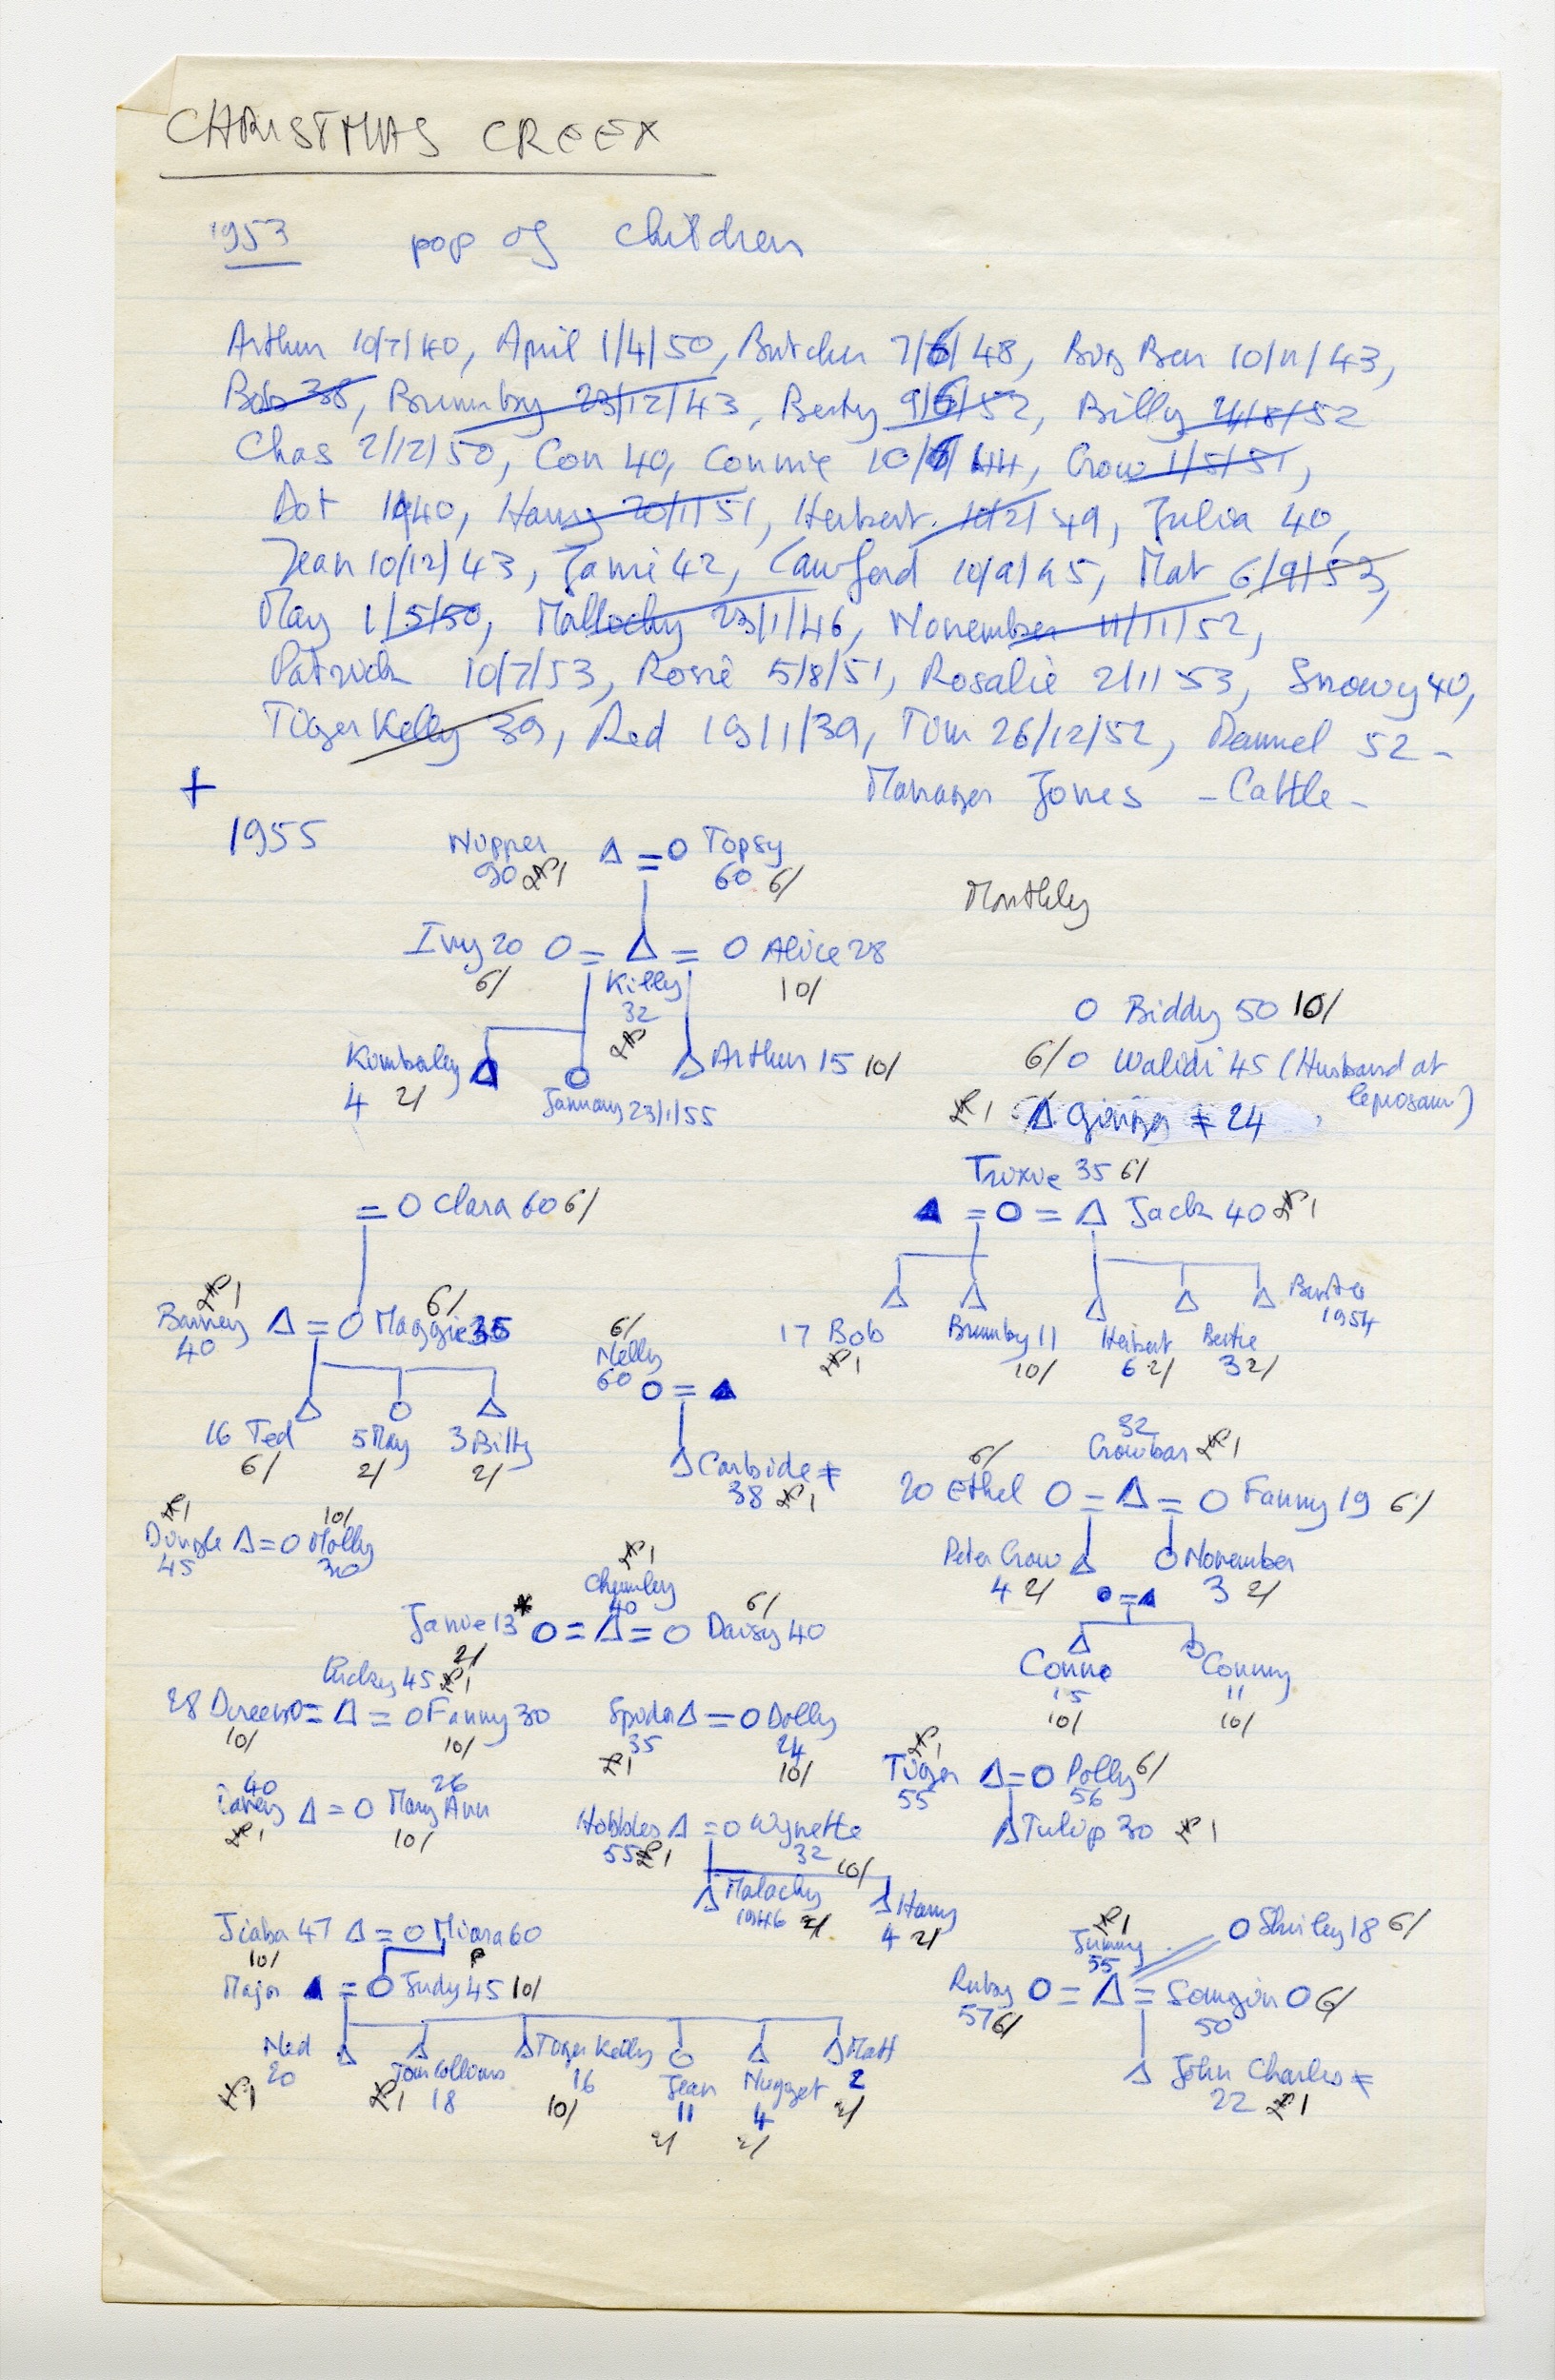 CHRISTMAS CREEK
1953 pop of children
Arthur 10/7/40, April 1/4/50, Butcher 7/6/48, Big Ben 10/11/43,
Bob 38, Brumby 23/12/43, Berty 9/6/52, Billy /8/52
Chas 2/12/50, Con 40, Connie 10/6/44, Crow 1/5/51,
Dot 40, Harry 20/1/51, Herbert /2/49, Julia 40,
Jean 10/12/43, Jamie 42, Cawford 10/9/45, Mat 6/9/53,
May 1/5/50, Mallochy 23/1/46, November 11/11/52,
Patrick 10/7/53, Rosie 5/8/51, Rosalie 2/1/53, Snowy 40,
Tiger Kelly 39, Red 19/1/39, Tim 26/12/52, 52 -
Manager Jones - Cattle -
+
1955
Nipper Δ = O Topsy
90 £1 60 6/
Monthly
Ivy 20 O = Δ = O Alice 28
6/ Killy 10/
32
O Biddy 50 10/
Kimberley Arthur 15 10/
4 2/ January 23/1/55
6/ O Walidi 45 (Husband at
leprosaur)
£1 Δ Ginger ≠ 24
Trixie 35 6/
= O Clara 60 6/
▲ = O = Δ Jack 40 £1
£1 6/
Barney Δ = O Maggie 35
40
17 Bob Brumby 11 Herbert Bertie 1954
£1 10/ 6 2/ 3 2/
6/
Nelly
60 O = ▲
16 Ted 5 May 3 Billy
6/ 2/ 2/
Δ Carbide ≠
38 £1
32
6/ Crowbar £1
20 Ethel O = Δ = O Fanny 19 6/
£1 10/
Δ = O Molly
45 30
Peter Crow Δ O November
4 2/ 3 2/
£1
40
Janie 13* O = Δ = O Daisy 40
2/ 6/
● = ▲
Conno Conny
15 11
10/ 10/
45 £1
28 Doreen O = Δ = O Fanny 30
10/ 10/
Spider Δ = O Dolly
35 24
£1 10/
£1
Tiger Δ = O Polly 6/
55 56
Δ Tulip 30 £1
40 26
Δ = O Mary Ann
£1 10/
Hobbles Δ = O Wynette
55 £1 32 10/
Malachy Harry
1946 2/ 4 2/
Jiaba 47 Δ = O Miara 60
10/ P
Major ▲ = O Judy 45 10/
£1
Jimmy O Shirley 18 6/
55
Ruby O = Δ = Saugin O 6/
57 6/ 50
Ned Tom Collins Tiger Kelly Jean Nugget Matt
20 18 16 11 4 2
£1 £1 10/ 2/ 2/ 2/
Δ John Charles ≠
22 £1